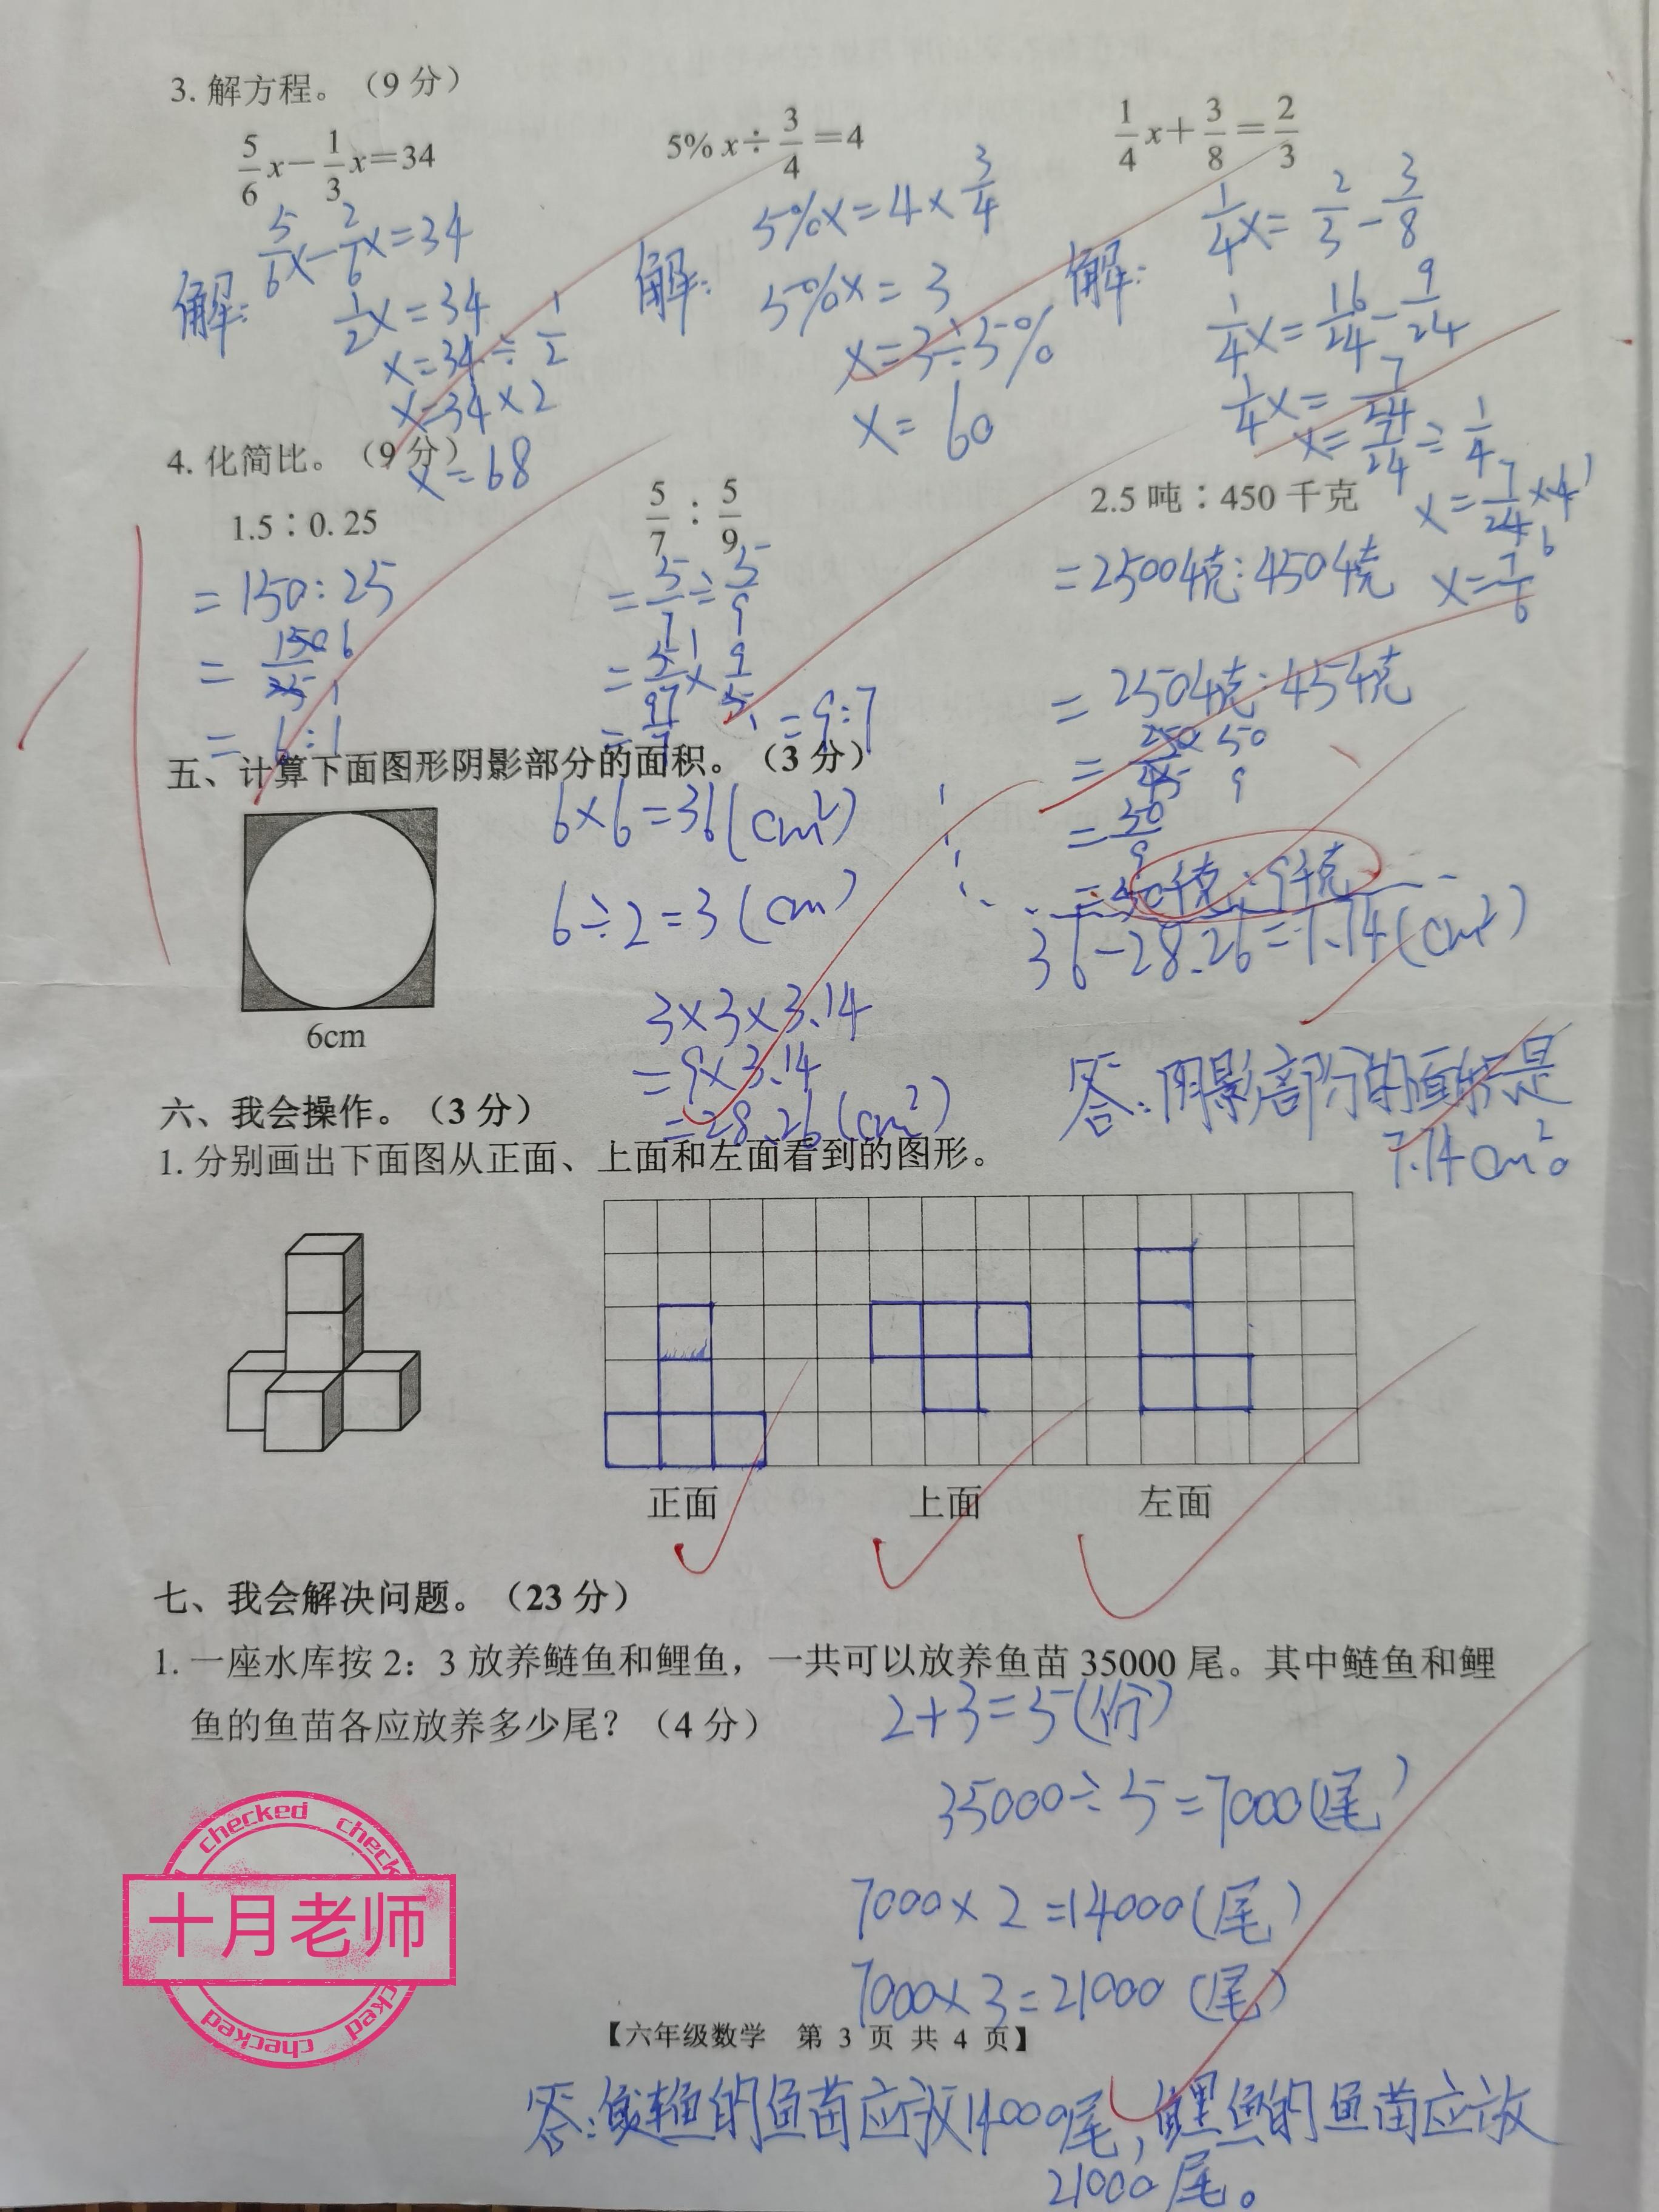 3. 解方程。（9 分）
5/6 x－1/3 x＝34
5% x÷3/4＝4
1/4 x＋3/8＝2/3
解: 5/6x－2/6x＝34
1/2x＝34
x＝34÷1/2
x＝34×2
x＝68
解: 5%x＝4×3/4
5%x＝3
x＝3÷5%
x＝60
解: 1/4x＝2/3－3/8
1/4x＝16/24－9/24
1/4x＝7/24
x＝7/24÷1/4
x＝7/24×4
x＝7/6
4. 化简比。（9 分）
1.5∶0.25
＝150:25
＝150/25 6 1
＝6:1
5/7∶5/9
＝5/7÷5/9
＝5/7×9/5
＝9/7＝9:7
2.5 吨∶450 千克
＝2500千克:450千克
＝250千克:45千克
＝250/45 50 9
＝50/9
＝50千克:9千克
五、计算下面图形阴影部分的面积。（3 分）
6cm
6×6＝36(cm²)
6÷2＝3(cm)
3×3×3.14
＝9×3.14
＝28.26(cm²)
36－28.26＝7.74(cm²)
答:阴影部分的面积是
7.74cm²。
六、我会操作。（3 分）
1. 分别画出下面图从正面、上面和左面看到的图形。
正面 上面 左面
七、我会解决问题。（23 分）
1. 一座水库按 2：3 放养鲢鱼和鲤鱼，一共可以放养鱼苗 35000 尾。其中鲢鱼和鲤
鱼的鱼苗各应放养多少尾？（4 分）
2＋3＝5(份)
35000÷5＝7000(尾)
7000×2＝14000(尾)
7000×3＝21000(尾)
checked checked
十月老师
checked checked
【六年级数学 第 3 页 共 4 页】
答:鲢鱼的鱼苗应放14000尾,鲤鱼的鱼苗应放
21000尾。